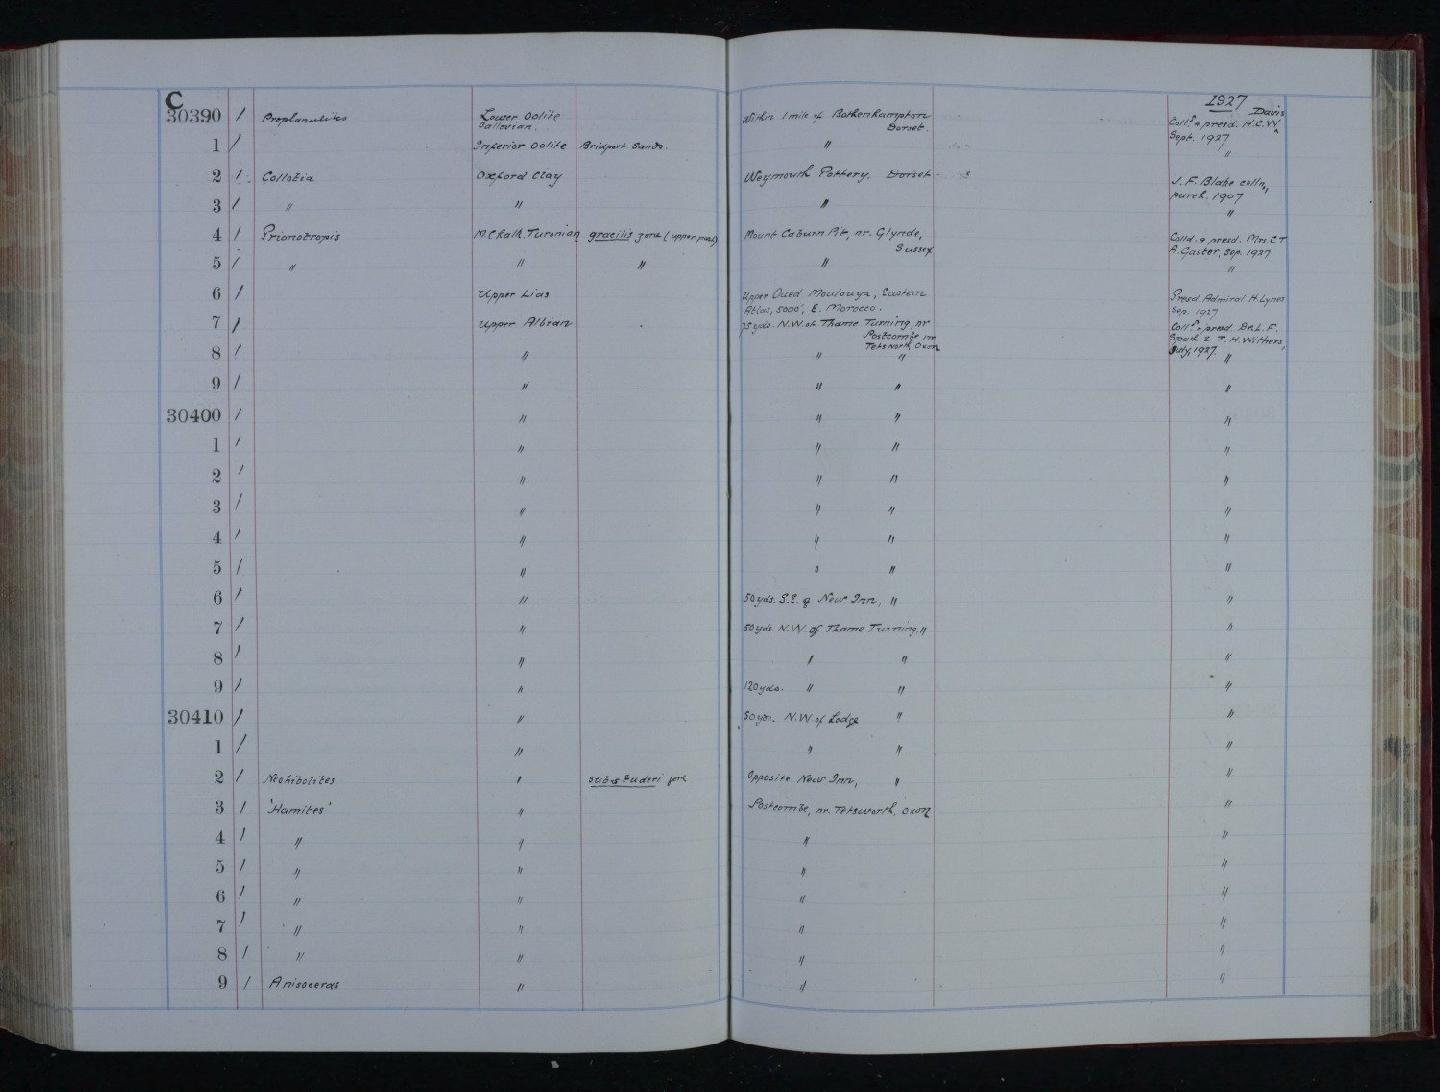 C 1927
30390 / Proplanulites Lower Oolite Within 1 mile of Bothenhampton Davis
Callovian. Dorset. Coll.d & presd. H.C.W.
1 / Inferior Oolite Bridport Sands. " Sept. 1927
"
2 / Collotia Oxford Clay Weymouth Pottery, Dorset J.F. Blake colln,
purch. 1907
3 / " " " "
4 / Prionotropis M. Chalk. Turonian gracilis zone (upper part) Mount Caburn Pit, nr. Glynde, Colld. & presd. Mrs. C T
Sussex A. Gaster, Sep. 1927
5 / " " " " "
6 / Upper Lias Upper Oued Moulouya, Eastern Presd. Admiral H. Lynes
Atlas, 5000', E. Morocco. Sep. 1927
7 / Upper Albian 75 yds. N.W. of Thame Turning, nr Coll.d & presd. Dr. L.F.
Postcombe nr Spath & T.H. Withers,
Tetsworth, Oxon July, 1927.
8 / " " " "
9 / " " " "
30400 / " " " "
1 / " " " "
2 / " " " "
3 / " " " "
4 / " " " "
5 / " " " "
6 / " 50 yds. S.E. of New Inn, " "
7 / " 50 yds. N.W. of Thame Turning, " "
8 / " " " "
9 / " 120 yds. " " "
30410 / " 50 yds. N.W. of Lodge " "
1 / " " " "
2 / Neohibolites " substuderi zone Opposite New Inn, " "
3 / 'Hamites' " Postcombe, nr. Tetsworth, Oxon "
4 / " " " "
5 / " " " "
6 / " " " "
7 / " " " "
8 / " " " "
9 / Anisoceras " " "